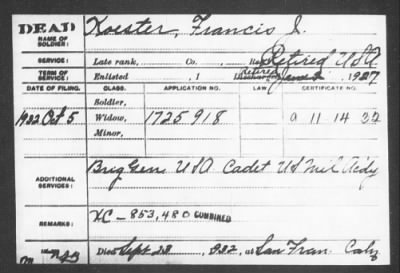 DEAD Koester, Francis J.
NAME OF SOLDIER:
SERVICE: Late rank, Co. Retired USA
TERM OF SERVICE: Enlisted , 1 Retired Discharged June 2, 1927
DATE OF FILING. CLASS. APPLICATION NO. LAW CERTIFICATE NO.
Soldier,
1932 Oct 5 Widow, 1725918 9 11 14 32
Minor,
ADDITIONAL SERVICES: Brig Genl USA Cadet US Mil Acdy
REMARKS: XC-853,480 COMBINED
Died Sept 28, 1932, at San Fran. Calif